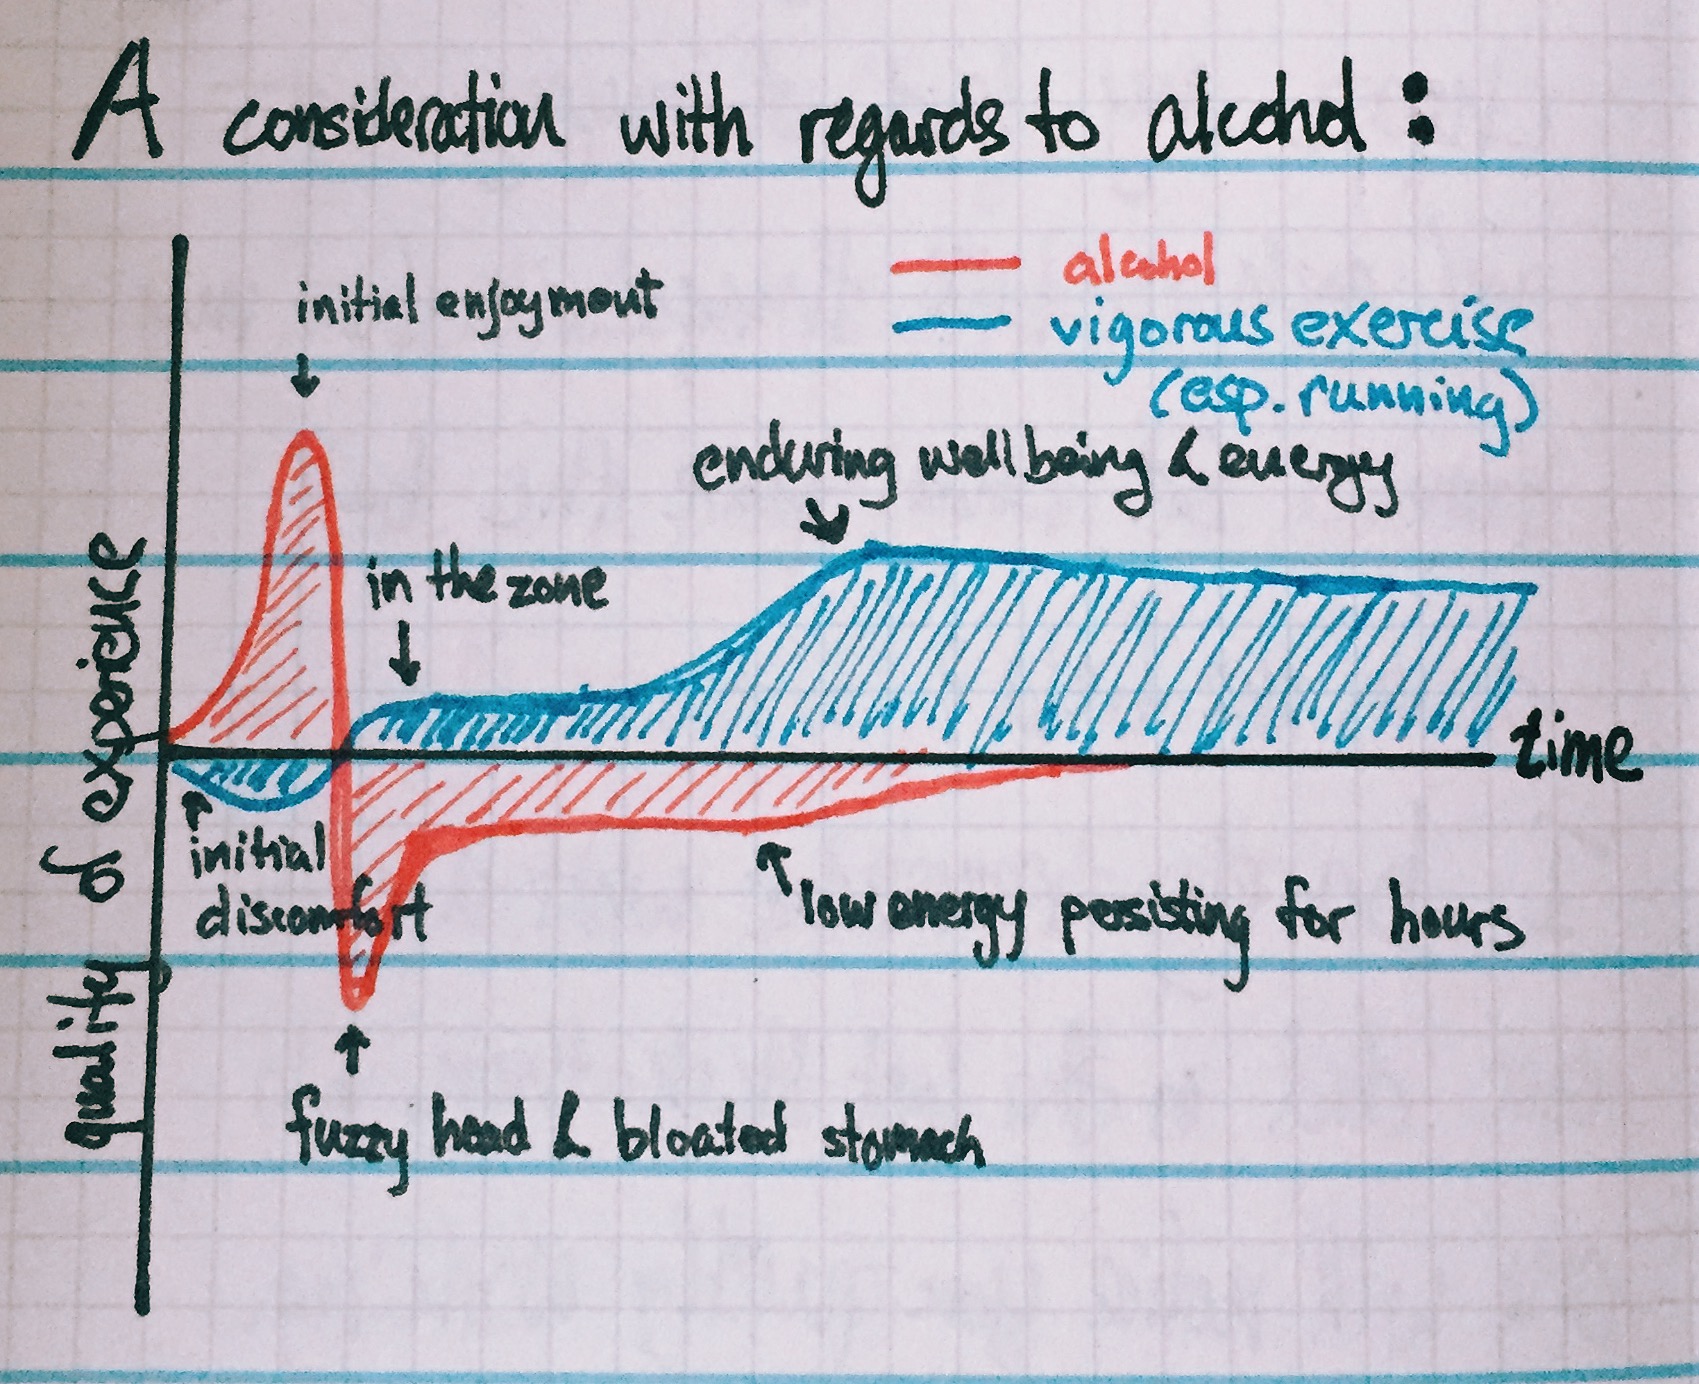 A consideration with regards to alcohol :
initial enjoyment
alcohol
vigorous exercise
(esp. running)
enduring wellbeing & energy
in the zone
quality of experience
time
initial
discomfort
low energy persisting for hours
fuzzy head & bloated stomach